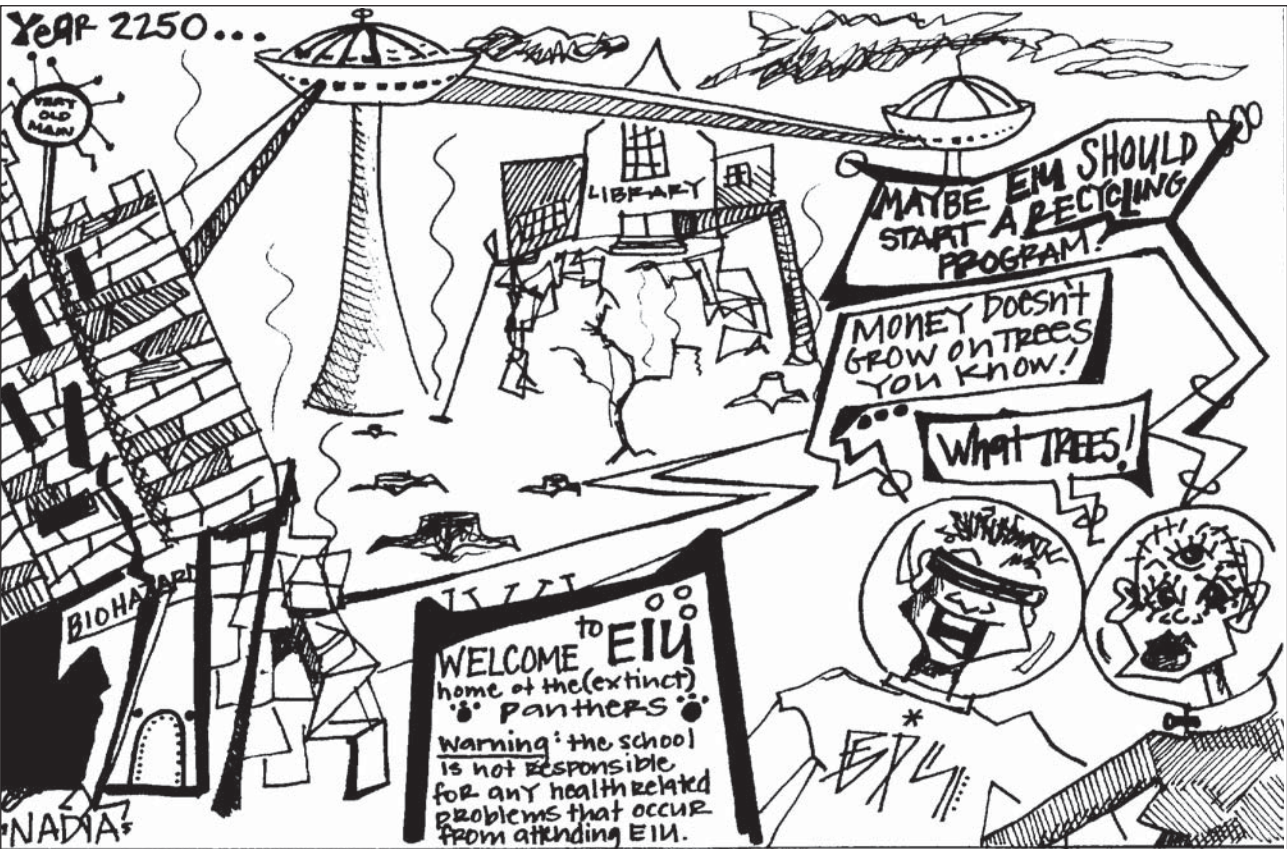 Year 2250...
VERY
OLD
MAIN
LIBRARY
MAYBE EIU SHOULD
START A RECYCLING
PROGRAM!
MONEY Doesn't
GROW on TREES
You Know!
What TREES!
BIOHAZARD
WELCOME to EIU
home of the (extinct)
Panthers
Warning: the school
is not Responsible
for any health related
problems that occur
from attending EIU.
*
EIU
NADIA